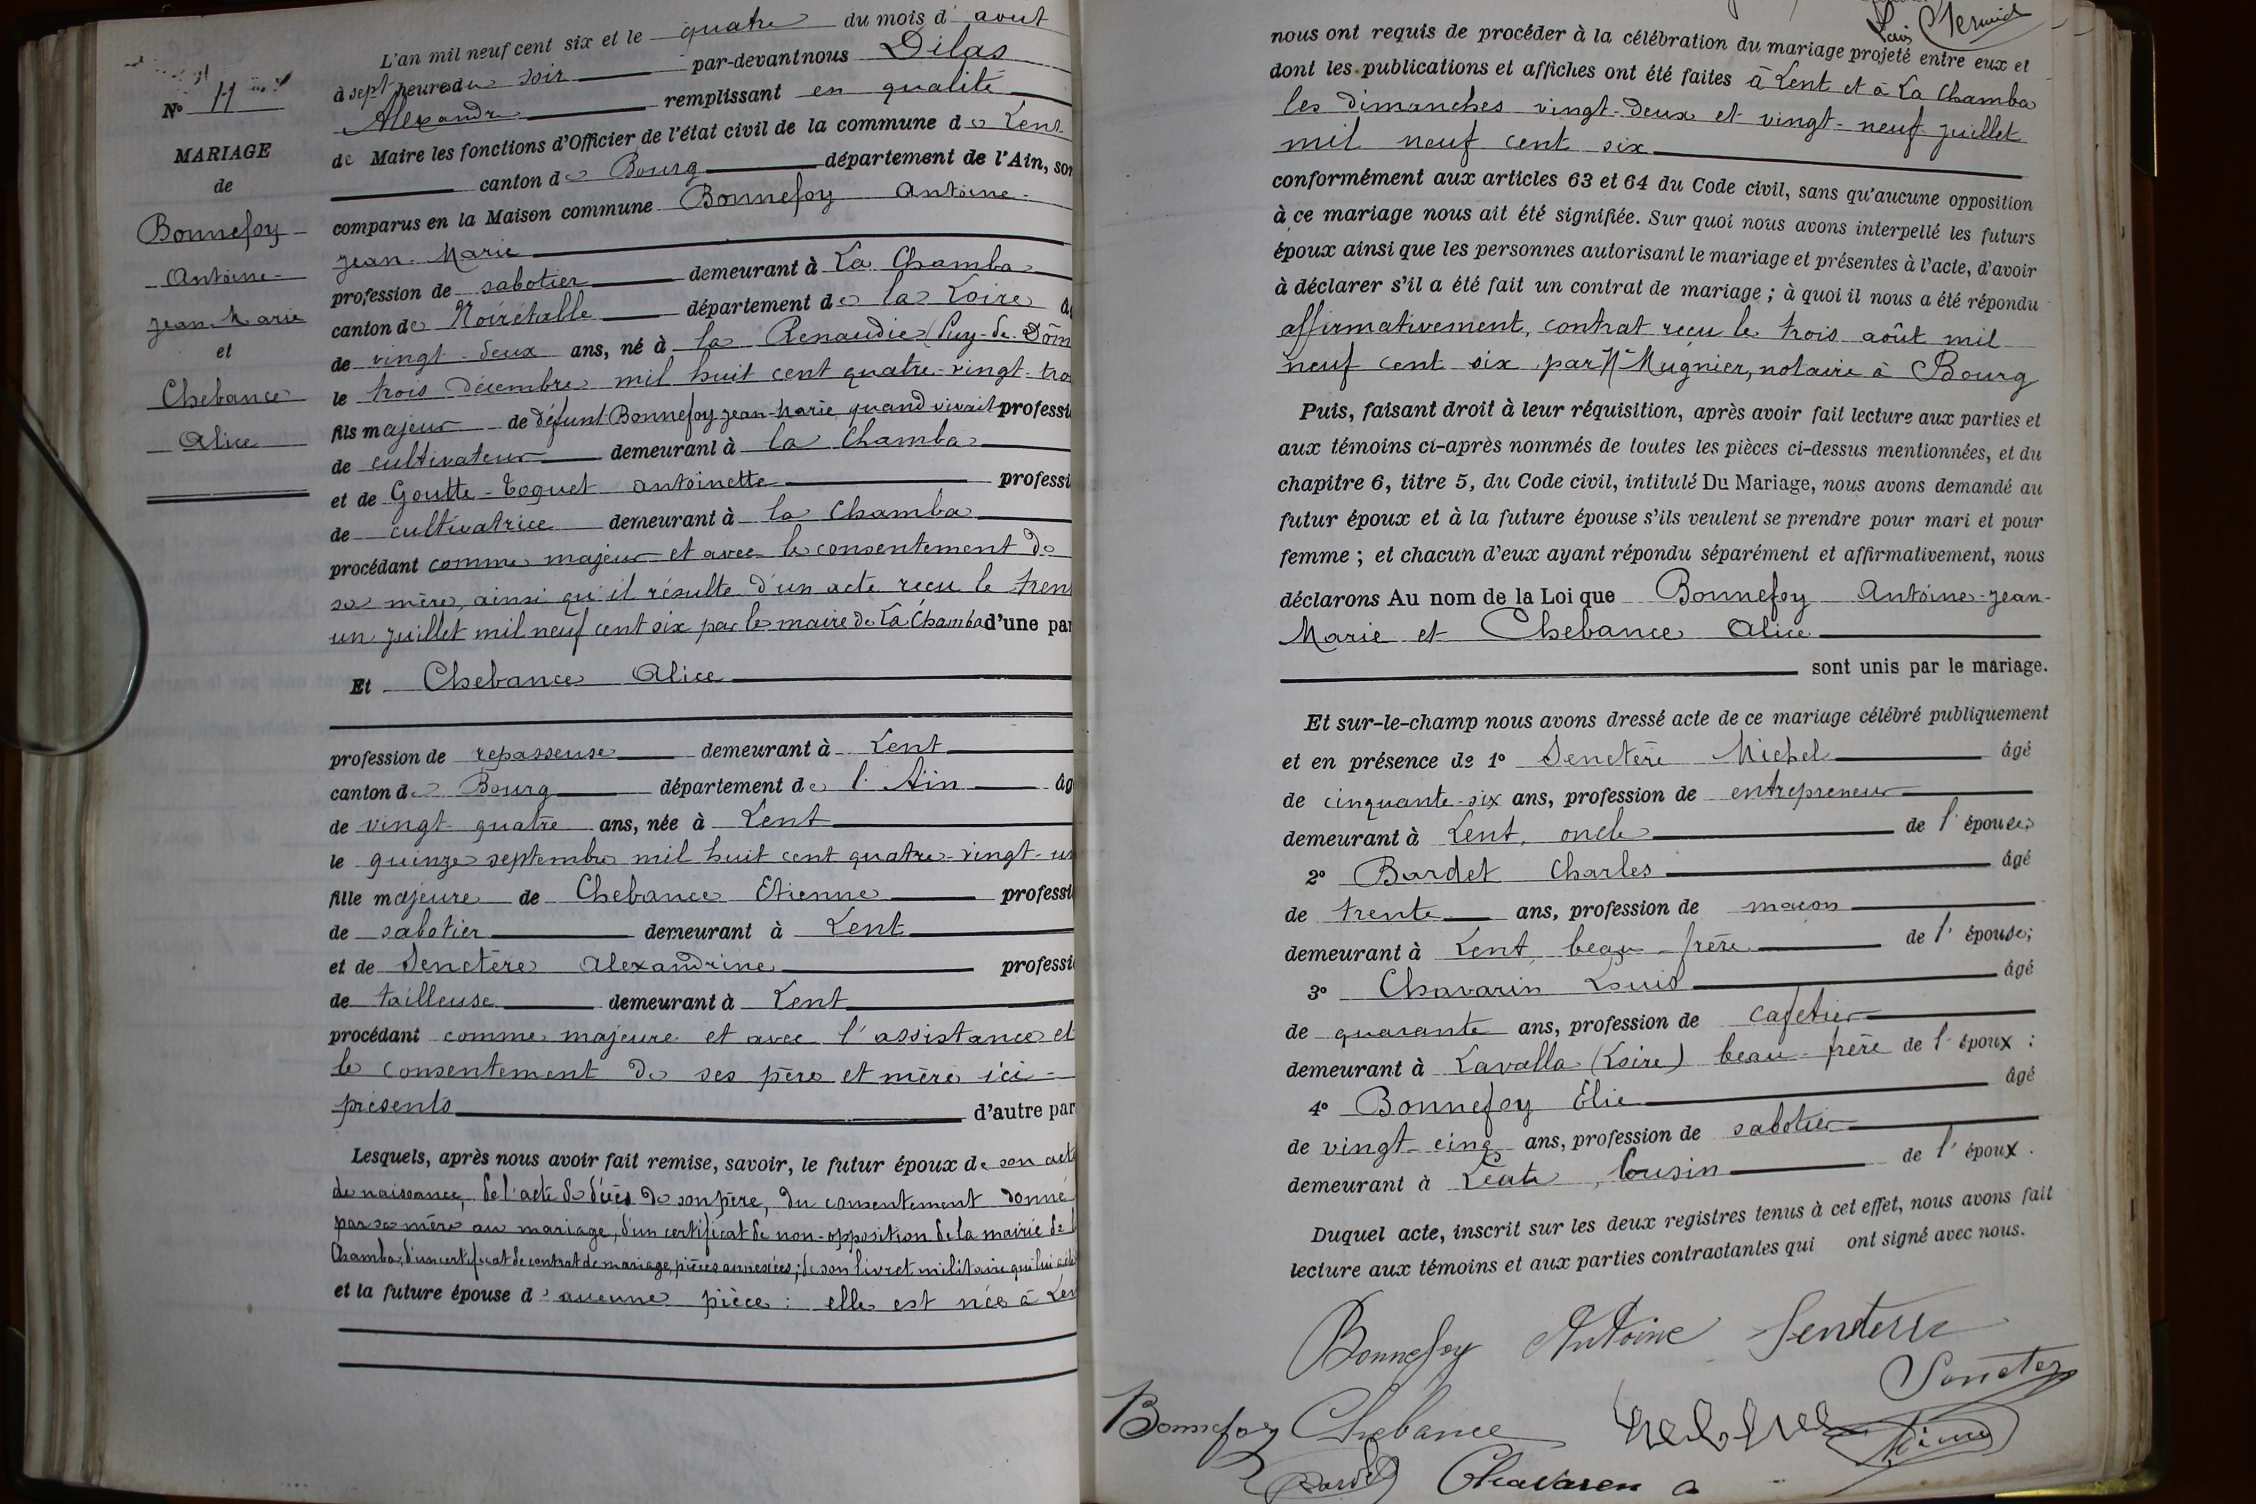 N° 11
MARIAGE
de
Bonnefoy
Antoine
Jean-Marie
et
Chebance
Alice
L'an mil neuf cent six et le quatre du mois d' aout
à sept heures du soir par-devant nous Dilas
Alexandre remplissant en qualité
de Maire les fonctions d'Officier de l'état civil de la commune de Lent
canton de Bourg département de l'Ain, son
comparus en la Maison commune Bonnefoy Antoine-
Jean-Marie
profession de sabotier demeurant à La Chamba
canton de Noirétable département de la Loire âg
de vingt-deux ans, né à la Renaudie (Puy-de-Dôm
le trois décembre mil huit cent quatre-vingt-tro
fils majeur de défunt Bonnefoy Jean-Marie quand vivait professi
de cultivateur demeurant à la Chamba
et de Goutte-Toquet Antoinette professi
de cultivatrice demeurant à la Chamba
procédant comme majeur et avec le consentement de
sa mère, ainsi qu'il résulte d'un acte reçu le trent
un juillet mil neuf cent six par le maire de La Chamba d'une par
Et Chebance Alice
profession de repasseuse demeurant à Lent
canton de Bourg département de l'Ain âg
de vingt-quatre ans, née à Lent
le quinze septembre mil huit cent quatre-vingt-un
fille majeure de Chebance Etienne professi
de sabotier demeurant à Lent
et de Senctère Alexandrine professi
de tailleuse demeurant à Lent
procédant comme majeure et avec l'assistance et
le consentement de ses père et mère ici-
présents d'autre par
Lesquels, après nous avoir fait remise, savoir, le futur époux de son acte
de naissance, de l'acte de décès de son père, du consentement donné
par sa mère au mariage, d'un certificat de non-opposition de la mairie de l
Chamba, d'un certificat de contrat de mariage, pièces annexées; de son livret militaire qui lui a été
et la future épouse d'aucune pièce: elle est née à Len
nous ont requis de procéder à la célébration du mariage projeté entre eux et
dont les publications et affiches ont été faites à Lent et à La Chamba
les dimanches vingt-deux et vingt-neuf juillet
mil neuf cent six
conformément aux articles 63 et 64 du Code civil, sans qu'aucune opposition
à ce mariage nous ait été signifiée. Sur quoi nous avons interpellé les futurs
époux ainsi que les personnes autorisant le mariage et présentes à l'acte, d'avoir
à déclarer s'il a été fait un contrat de mariage; à quoi il nous a été répondu
affirmativement, contrat reçu le trois août mil
neuf cent six par Me Mugnier, notaire à Bourg
Puis, faisant droit à leur réquisition, après avoir fait lecture aux parties et
aux témoins ci-après nommés de toutes les pièces ci-dessus mentionnées, et du
chapitre 6, titre 5, du Code civil, intitulé Du Mariage, nous avons demandé au
futur époux et à la future épouse s'ils veulent se prendre pour mari et pour
femme; et chacun d'eux ayant répondu séparément et affirmativement, nous
déclarons Au nom de la Loi que Bonnefoy Antoine-Jean-
Marie et Chebance Alice
sont unis par le mariage.
Et sur-le-champ nous avons dressé acte de ce mariage célébré publiquement
et en présence de 1° Senctère Michel âgé
de cinquante-six ans, profession de entrepreneur
demeurant à Lent, oncle de l'épouse;
2° Bardet Charles âgé
de trente ans, profession de maçon
demeurant à Lent, beau-frère de l'épouse;
3° Chavarin Louis âgé
de quarante ans, profession de cafetier
demeurant à Lavalla (Loire) beau-frère de l'époux;
4° Bonnefoy Elie âgé
de vingt-cinq ans, profession de sabotier
demeurant à , Cousin de l'époux.
Duquel acte, inscrit sur les deux registres tenus à cet effet, nous avons fait
lecture aux témoins et aux parties contractantes qui ont signé avec nous.
Bonnefoy Antoine
Bonnefoy Chebance
Bardet Chavaren